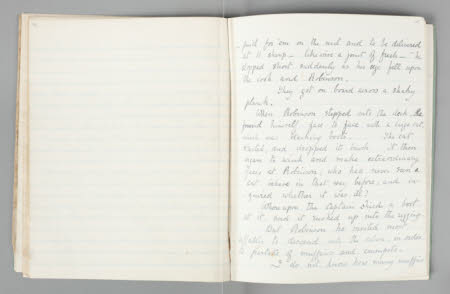 for 'em on the nail and to be delivered
at 11 sharp – likewise a joint of fresh – " he
stopped short suddenly as his eye fell upon
the cook and Robinson.
They got on board across a shaky
plank.
When Robinson stepped onto the deck he
found himself face to face with a large cat,
which was blacking boots. The cat
started and dropped its brush. It then
began to wink and make extraordinary
faces at Robinson, who had never seen a
cat behave in that way before; and in-
quired whether it was ill?
Whereupon the Captain threw a boot
at it and it rushed up into the rigging.
But Robinson he invited most
affably to descend into the cabin, in order
to partake of muffins and crumpets.
I do not know how many muffins